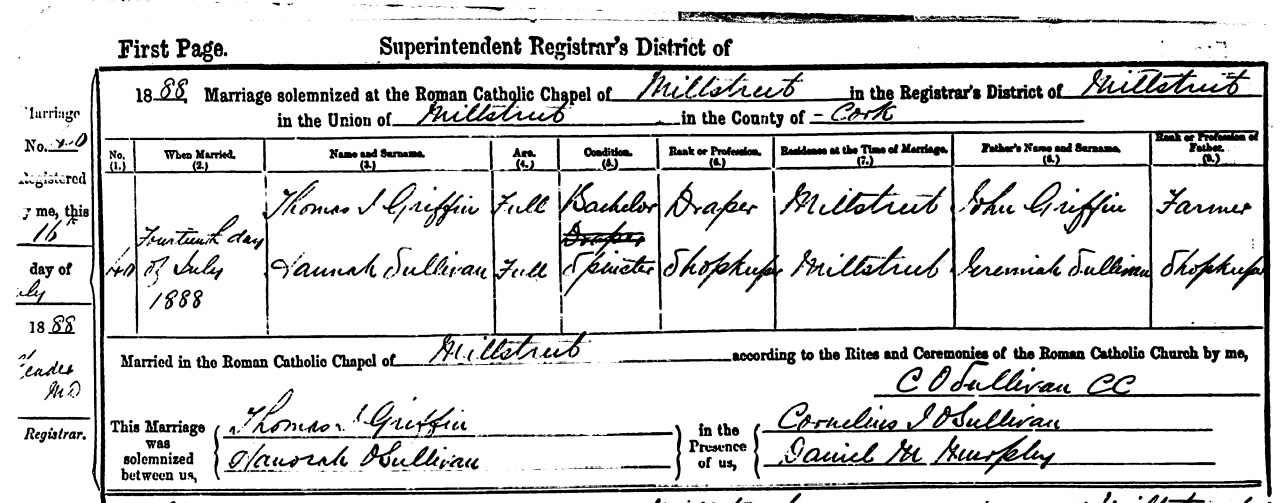 First Page. Superintendent Registrar's District of
1888, Marriage solemnized at the Roman Catholic Chapel of Millstreet in the Registrar's District of Millstreet
in the Union of Millstreet in the County of Cork
Marriage
No. 40
Registered
y me, this
16th
day of
ly
1888
M D
Registrar.
No. (1.) When Married. (2.) Name and Surname. (3.) Age. (4.) Condition. (5.) Rank or Profession. (6.) Residence at the Time of Marriage. (7.) Father's Name and Surname. (8.) Rank or Profession of Father. (9.)
Thomas J Griffin Full Bachelor Draper Millstreet John Griffin Farmer
Draper
40 Fourteenth day of July 1888 Hannah Sullivan Full Spinster Shopkeeper Millstreet Jeremiah Sullivan Shopkeeper
Married in the Roman Catholic Chapel of Millstreet according to the Rites and Ceremonies of the Roman Catholic Church by me,
C O Sullivan CC
This Marriage was solemnized between us,
Thomas J Griffin
Hanorah O Sullivan
in the Presence of us,
Cornelius J O Sullivan
Daniel M Murphy